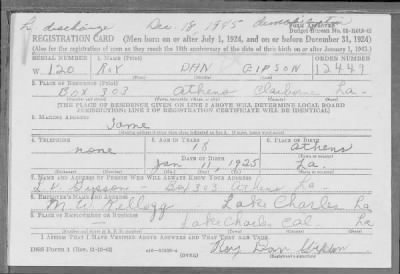 discharge Dec. 18, 1945 demobilization
FORM APPROVED
Budget Bureau No.
REGISTRATION CARD (Men born on or after July 1, 1924, and on or before December 31, 1924)
(Also for the registration of men as they reach the 18th anniversary of the date of their birth on or after January 1, 1943.)
SERIAL NUMBER 1. NAME (Print) ORDER NUMBER
W 120 ROY DAN GIPSON 12449
2. PLACE OF RESIDENCE (Print)
Box 303 Athens Claiborne La.
[THE PLACE OF RESIDENCE GIVEN ON LINE 2 ABOVE WILL DETERMINE LOCAL BOARD
JURISDICTION; LINE 2 OF REGISTRATION CERTIFICATE WILL BE IDENTICAL]
3. MAILING ADDRESS
Same
[Mailing address if other than place indicated on line 2. If same, insert word same]
4. TELEPHONE 5. AGE IN YEARS 6. PLACE OF BIRTH
none 18 Athens
DATE OF BIRTH
Jan 11, 1925 La.
7. NAME AND ADDRESS OF PERSON WHO WILL ALWAYS KNOW YOUR ADDRESS
Box 303 Athens La.
8. EMPLOYER'S NAME AND ADDRESS
M. W. Kellogg Lake Charles La
9. PLACE OF EMPLOYMENT OR BUSINESS
Lake Charles Cal. La
I AFFIRM THAT I HAVE VERIFIED ABOVE ANSWERS AND THAT THEY ARE TRUE.
DSS Form 1 (Rev. (OVER) Roy Dan Gipson